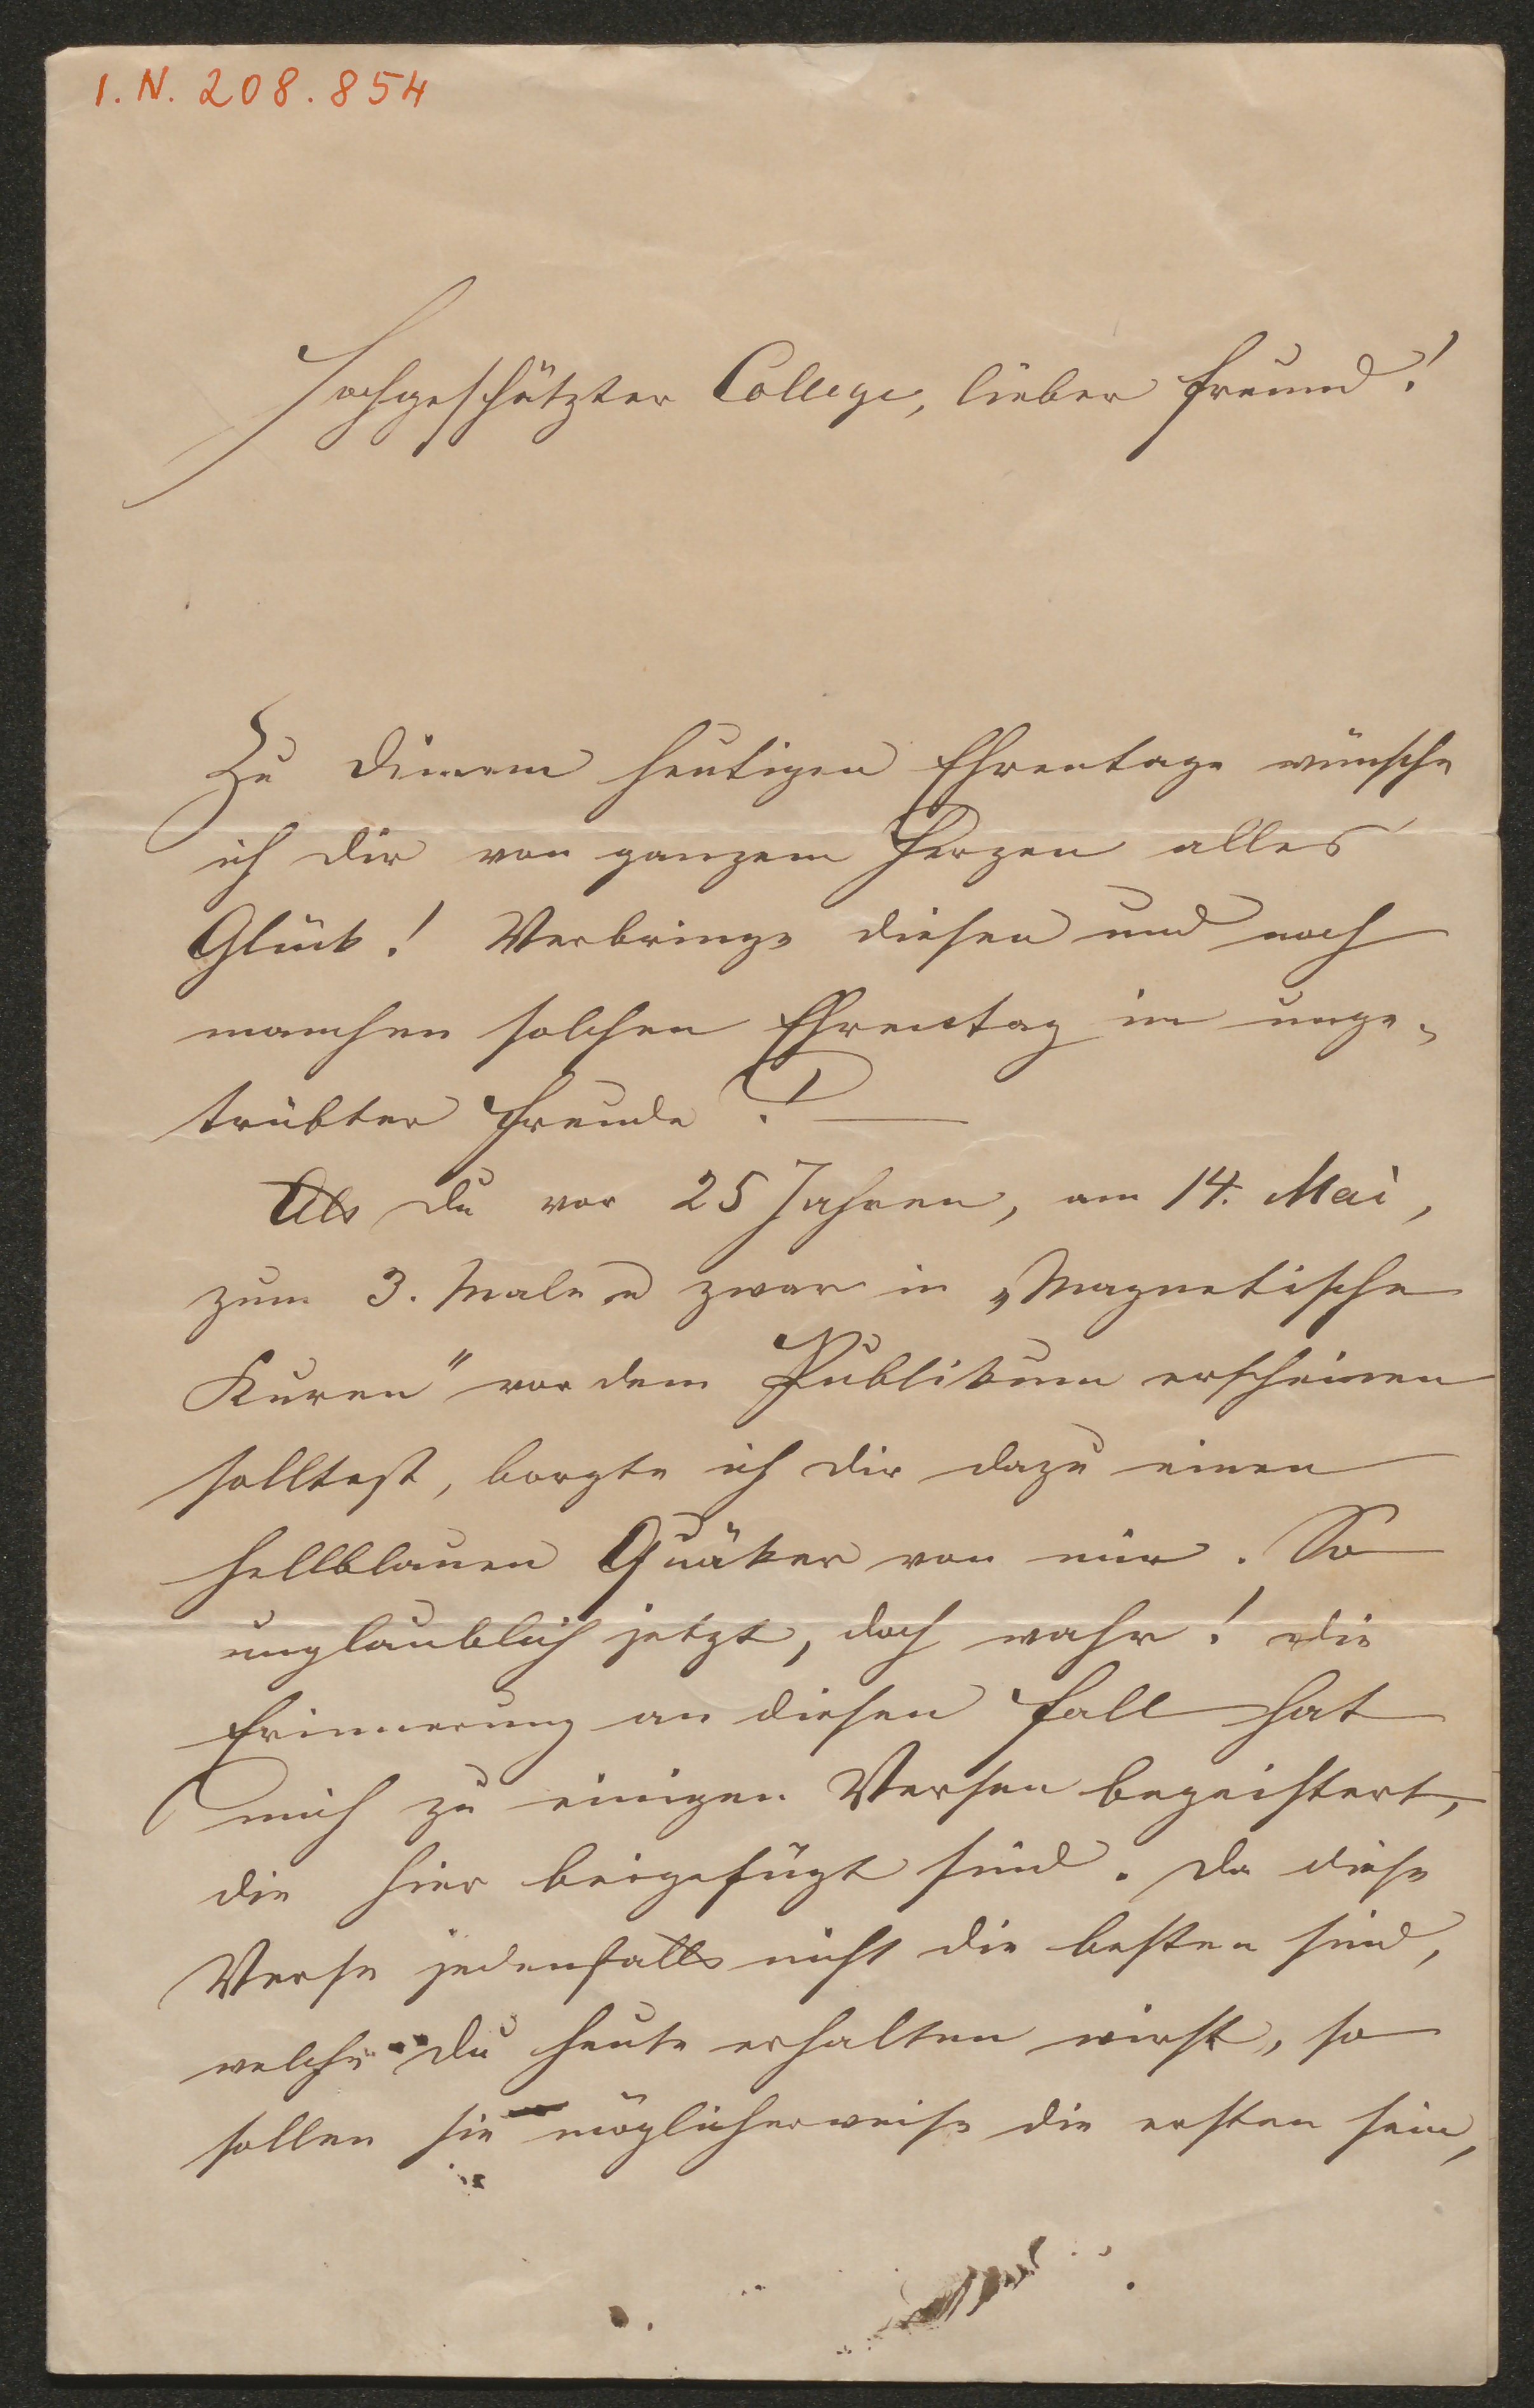 I. N. 208.854
Hochgeschätzter College, lieber Freund!
Zu Deinem heutigen Ehrentage wünsche
ich Dir von ganzem Herzen alles
Glück! Verbringe diesen und noch
manchen solchen Ehrentag in unge-
trübter Freude!
Als Du vor 25 Jahren, am 14. Mai,
zum 3. Male u zwar in „Magnetische
Kuren" vor dem Publikum erscheinen
solltest, borgte ich Dir dazu einen
hellblauen Quäker von mir. So
unglaublich jetzt, doch wahr! Die
Erinnerung an diesen Fall hat
mich zu einigen Versen begeistert,
die hier beigefügt sind. Da diese
Verse jedenfalls nicht die besten sind,
welche Du heute erhalten wirst, so
sollen sie möglicherweise die ersten sein,